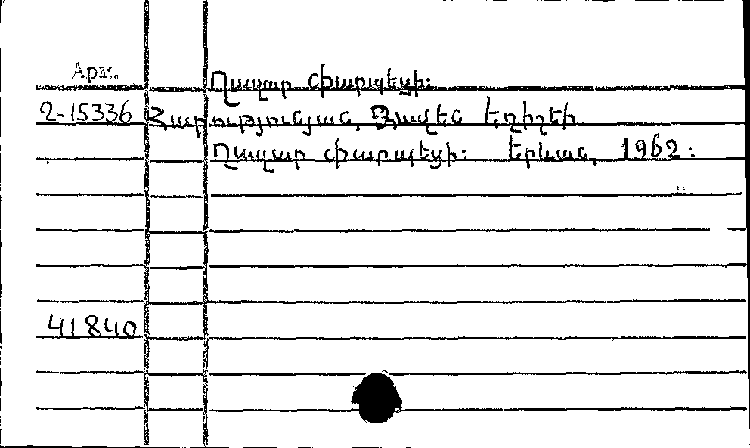 Арм.
Ղազար Փարպեցի:
2-15336 Հարությունյան, Զավեն Եղիշեի
Ղազար Փարպեցի: Երևան, 1962:
41840